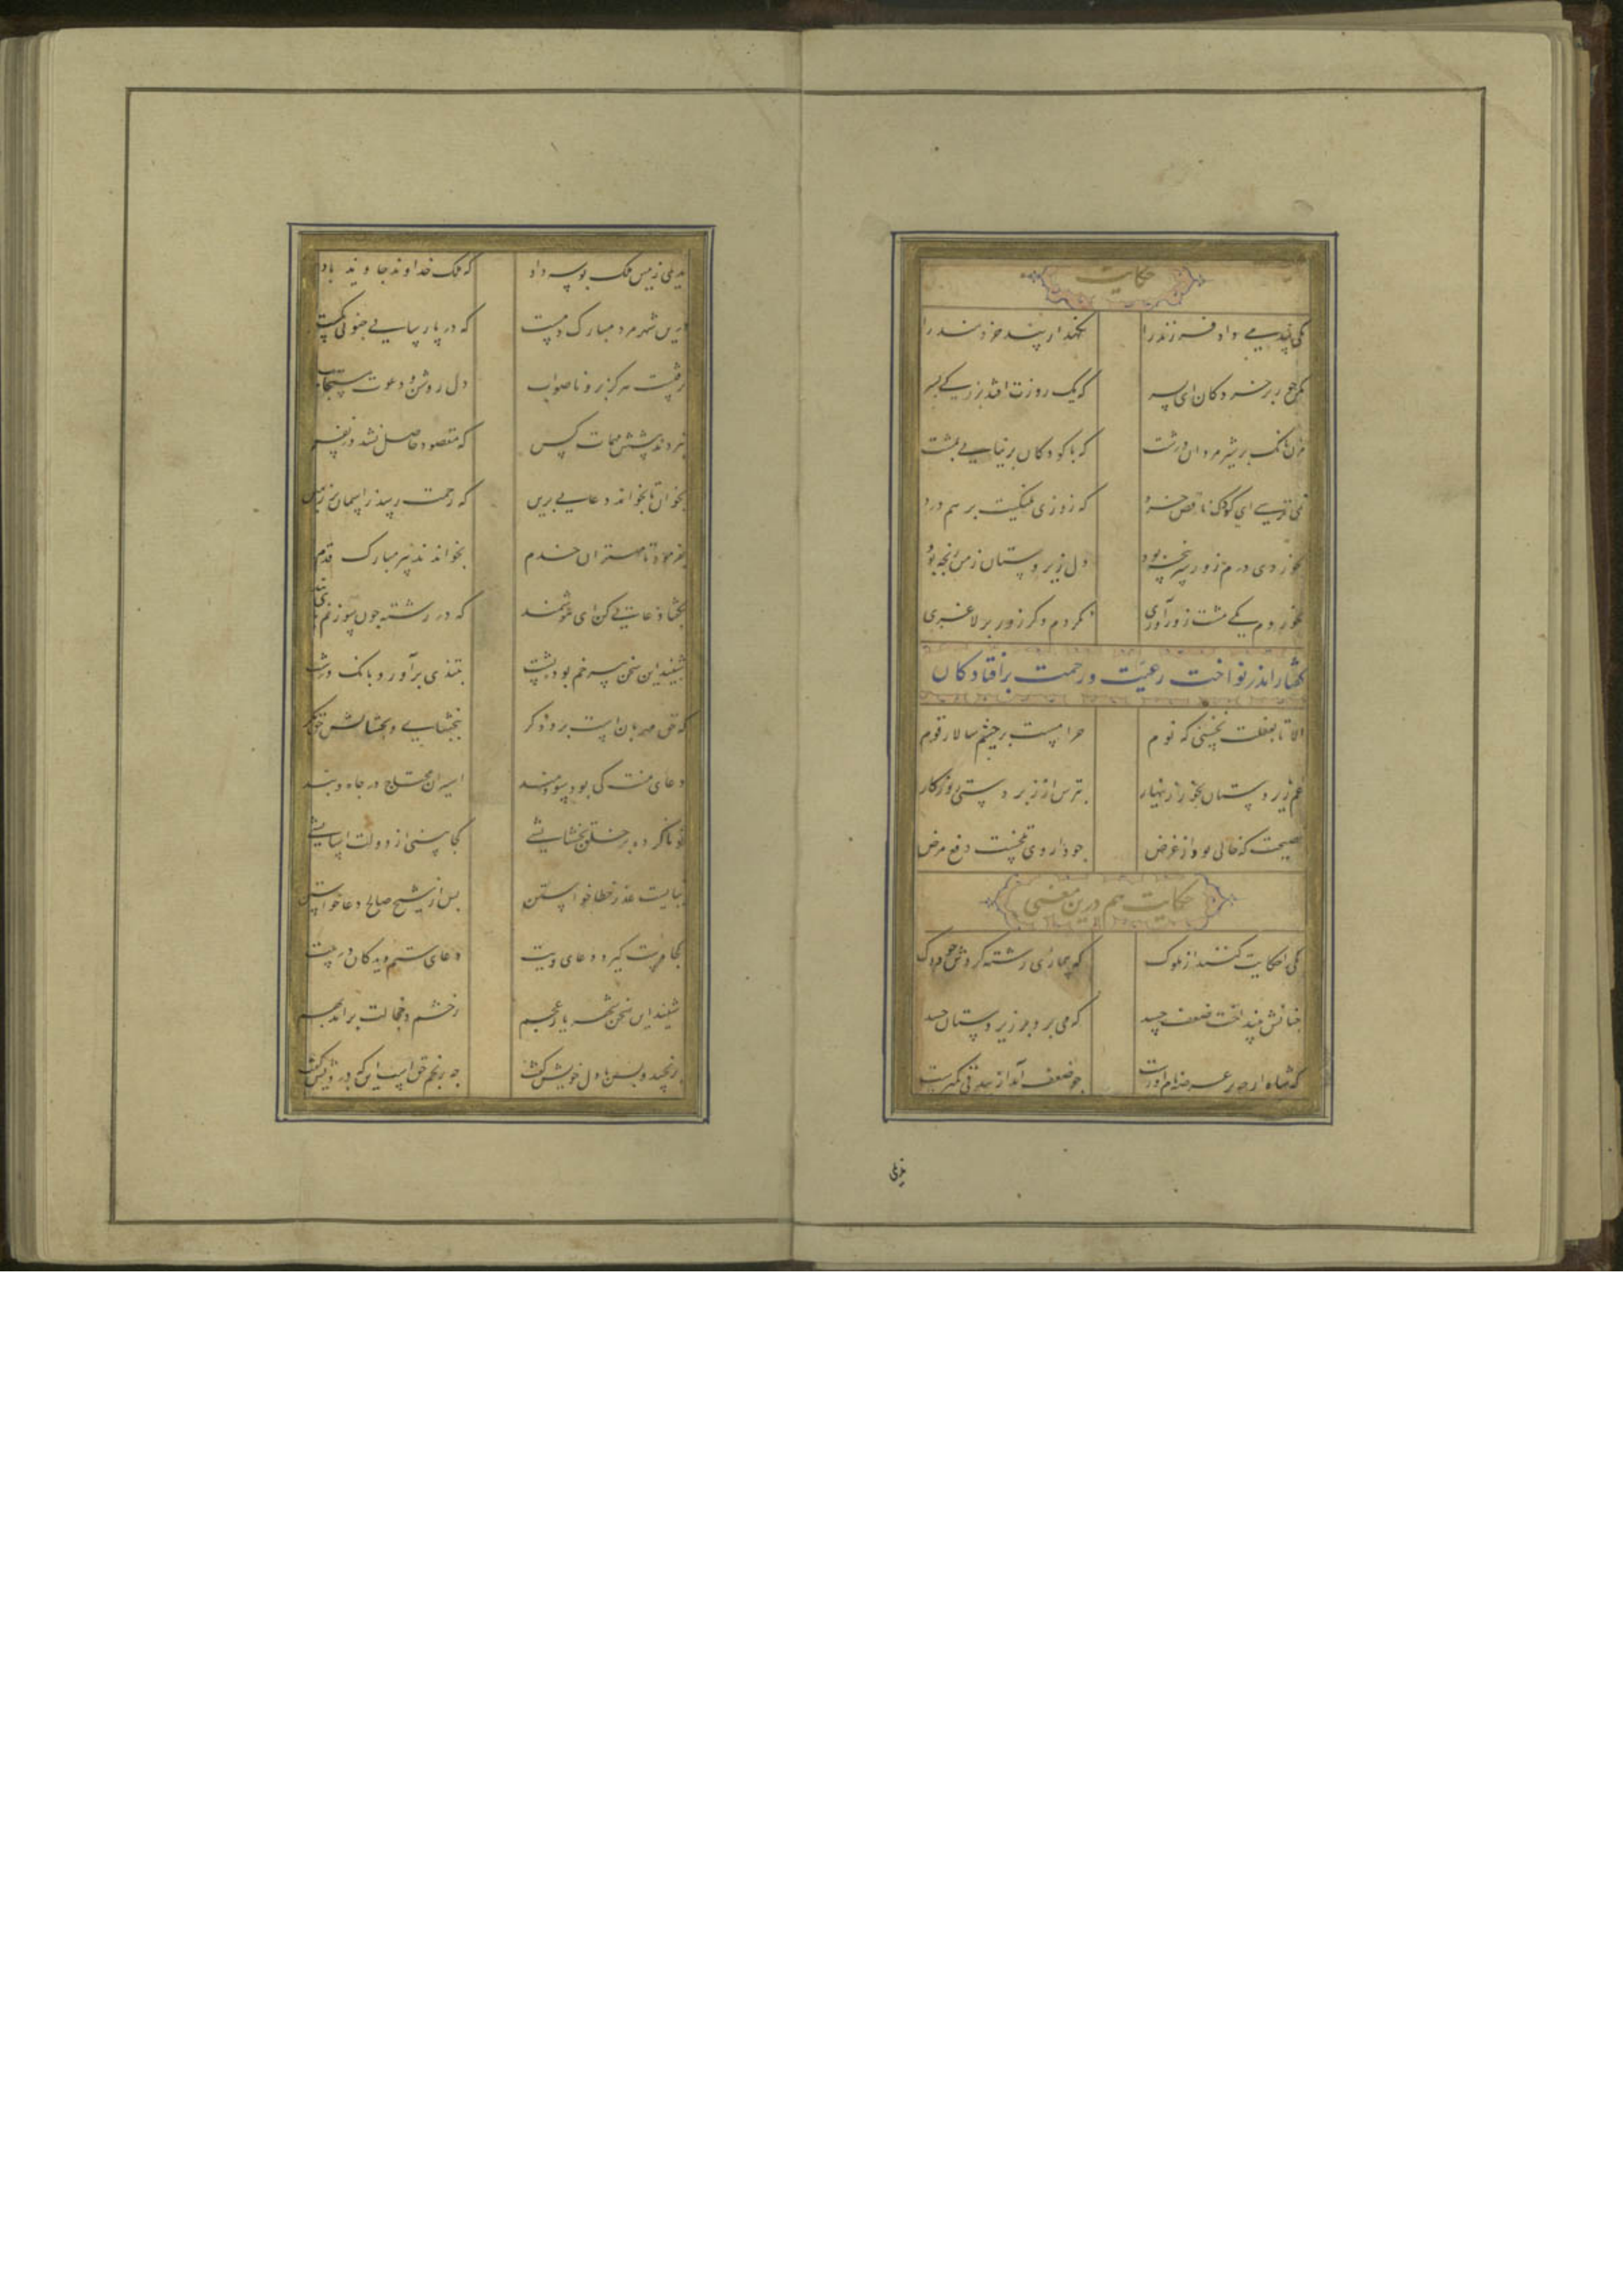 حکایت
یکی پند می داد فرزند را نگهدار پند خردمند را
مکن جور بر خردکان ای پسر که یک روزت افتد بزرکی بسر
که با کودکان برنیایی بمشت
نمی ترسی ای کودک ناقص خرد که روزی پلنکیت بر هم درد
بخردی درم زور سرپنجه بود دل زیردستان ز من رنجه بود
بخوردم یکی مشت زورآوری نکردم دکر زور بر لاغری
گفتار اندر نواخت رعیت و رحمت بر افتادکان
الا تا بغفلت نخسبی که نوم حرامست بر چشم سالار قوم
غم زیردستان بخور زینهار بترس از زبردستی روزکار
نصیحت که خالی بود از غرض جو داروی تلخست دفع مرض
حکایت هم درین معنی
یکی را حکایت کنند از ملوک که بیماری رشته کردش جو دوک
جنانش بینداخت ضعف جسد که می برد بر زیردستان حسد
که شاه ارجه بر عرصه نام اورست جو ضعف آمد از بیدقی کمترست
ندیمی
ندیمی زمین ملک بوسه داد که ملک خداوند جاوید باد
درین شهر مرد مبارک دمست که در پارسایی جنویی کمست
نرفتست هرکز برو ناصواب دل روشن و دعوت مستجاب
نبردند پیشش مهمات کس که مقصود حاصل نشد در نفس
بخوان تا بخواند دعایی برین که رحمت رسد ز اسمان بر زمین
بفرمود تا مهتران خدم بخواندند پیر مبارک قدم
بکفتا دعایی کن ای هوشمند که در رشته جون سوزنم پای بند
شنید این سخن پیر خم بوده پشت بتندی برآورد بانک درشت
که حق مهربانست بر دادکر ببخشای و بخشایش حق نکر
دعای منت کی بود سودمند اسیران محتاج در جاه و بند
تو ناکرده بر خلق بخشایشی کجا بینی از دولت اسایشی
ببایت عذر خطا خواستن پس از شیخ صالح دعا خواستن
کجا دست کیرد دعای ویت دعای ستم دیدکان در پیت
شنید این سخن شهریار عجم ز خشم و خجالت برآمد بهم
برنجید و پس با دل خویش کفت جه رنجم حق است این که درویش کفت